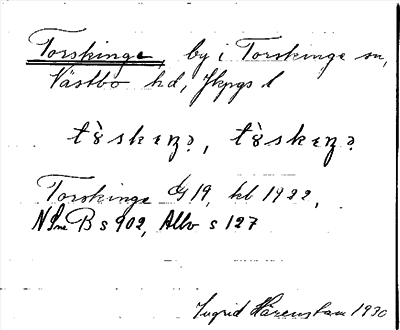 Torskinge, by i Torskinge sn,
Västbo hd, Jkpgs l
Torskinge G 19, kb 1922,
B s 902, Allv s 127
Ingrid Härenstam 1930